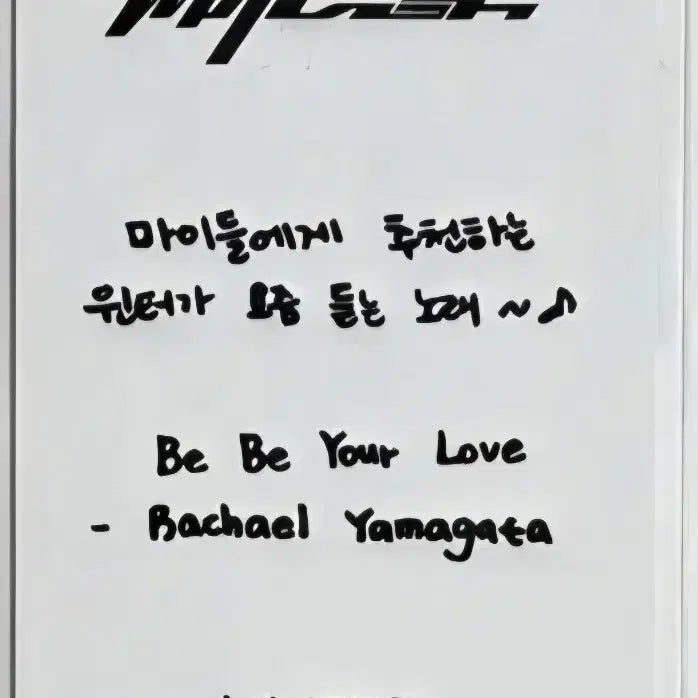 마이들에게 추천하는
윈터가 요즘 듣는 노래 ~ ♪
Be Be Your Love
- Rachael Yamagata